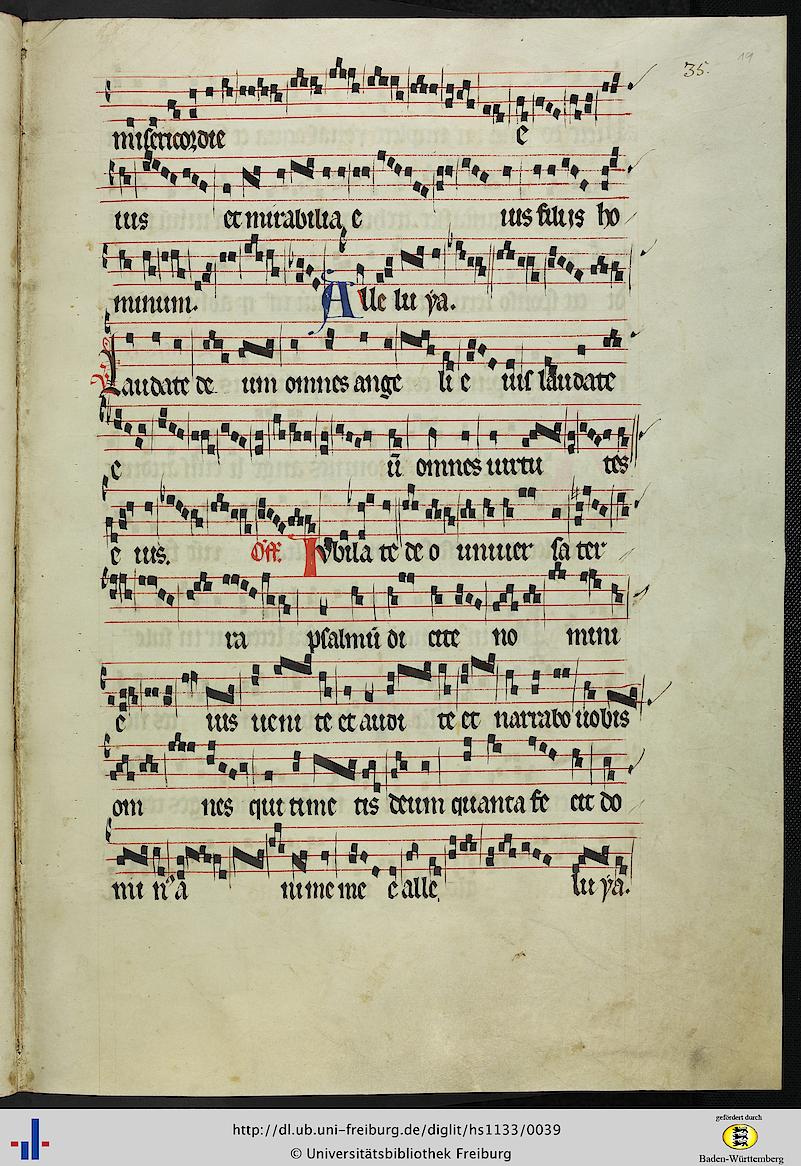 35.
19
misericordie e
ius et mirabilia e ius filiis ho
minum. Alle lu ya.
Laudate de um omnes ange li e ius laudate
e ū omnes uirtu tes
e ius. Off. Iubila te de o uniuer sa ter
ra psalmū di cite no mini
e ius ueni te et audi te et narrabo uobis
om nes qui time tis deum quanta fe cit do
mi n' a nime me e alle lu ya.
http://dl.ub.uni-freiburg.de/diglit/hs1133/0039
© Universitätsbibliothek Freiburg
gefördert durch
Baden-Württemberg